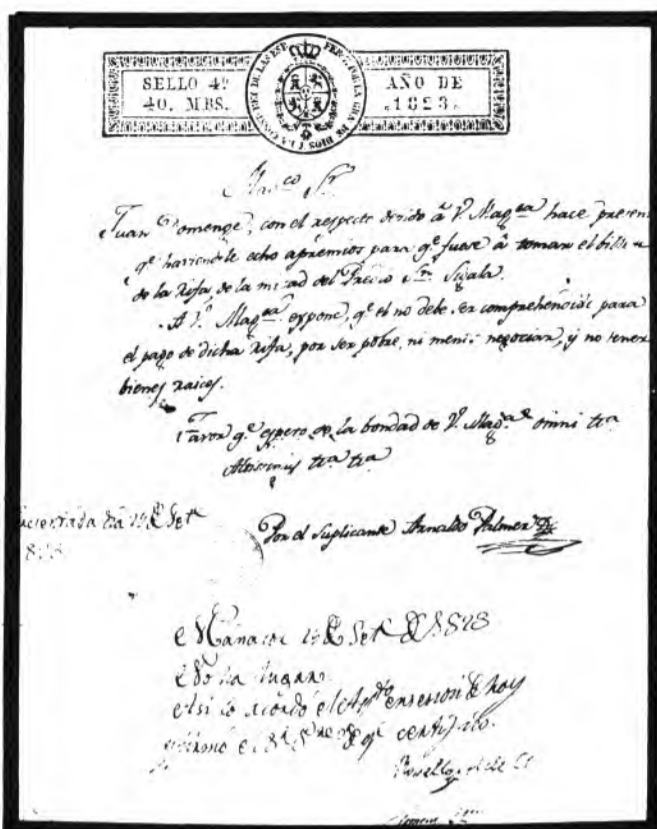 SELLO 4º
40. MRS.
AÑO DE
1823.
Juan Domenge, con el respecto devido â V. Mag.ca hace presen
qe. haviendole echo apremios para qe. fuese â tomar el bille
de la Rifa, de la mitad del Predio Sn. Sigala.
A V. Mag.ca expone, qe. el no debe ser comprehendido para
el pago de dicha Rifa, por ser pobre, ni menos negocian, y no tener
bienes raices.
Favor qe. espero de la bondad de V. Mag.ca omni
Altissimus
Por el Suplicante Arnaldo Palmer
Manacor Set. 1823
No ha lugar
Asi lo acordó el Ay.to en sesion de hoy
y firmó el Sr. de qe. certifico.
Rosello